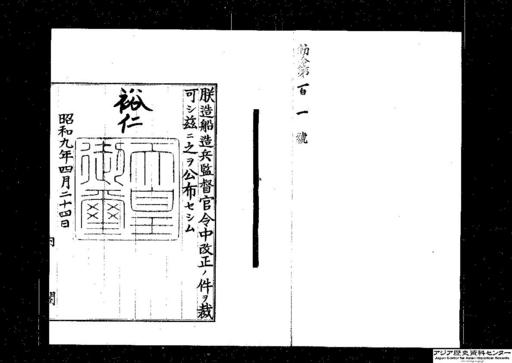 勅令第百一號
朕造船造兵監督官令中改正ノ件ヲ裁
可シ茲ニ之ヲ公布セシム
裕仁
天皇
御璽
昭和九年四月二十四日
内閣
アジア歴史資料センター
Japan Center for Asian Historical Records